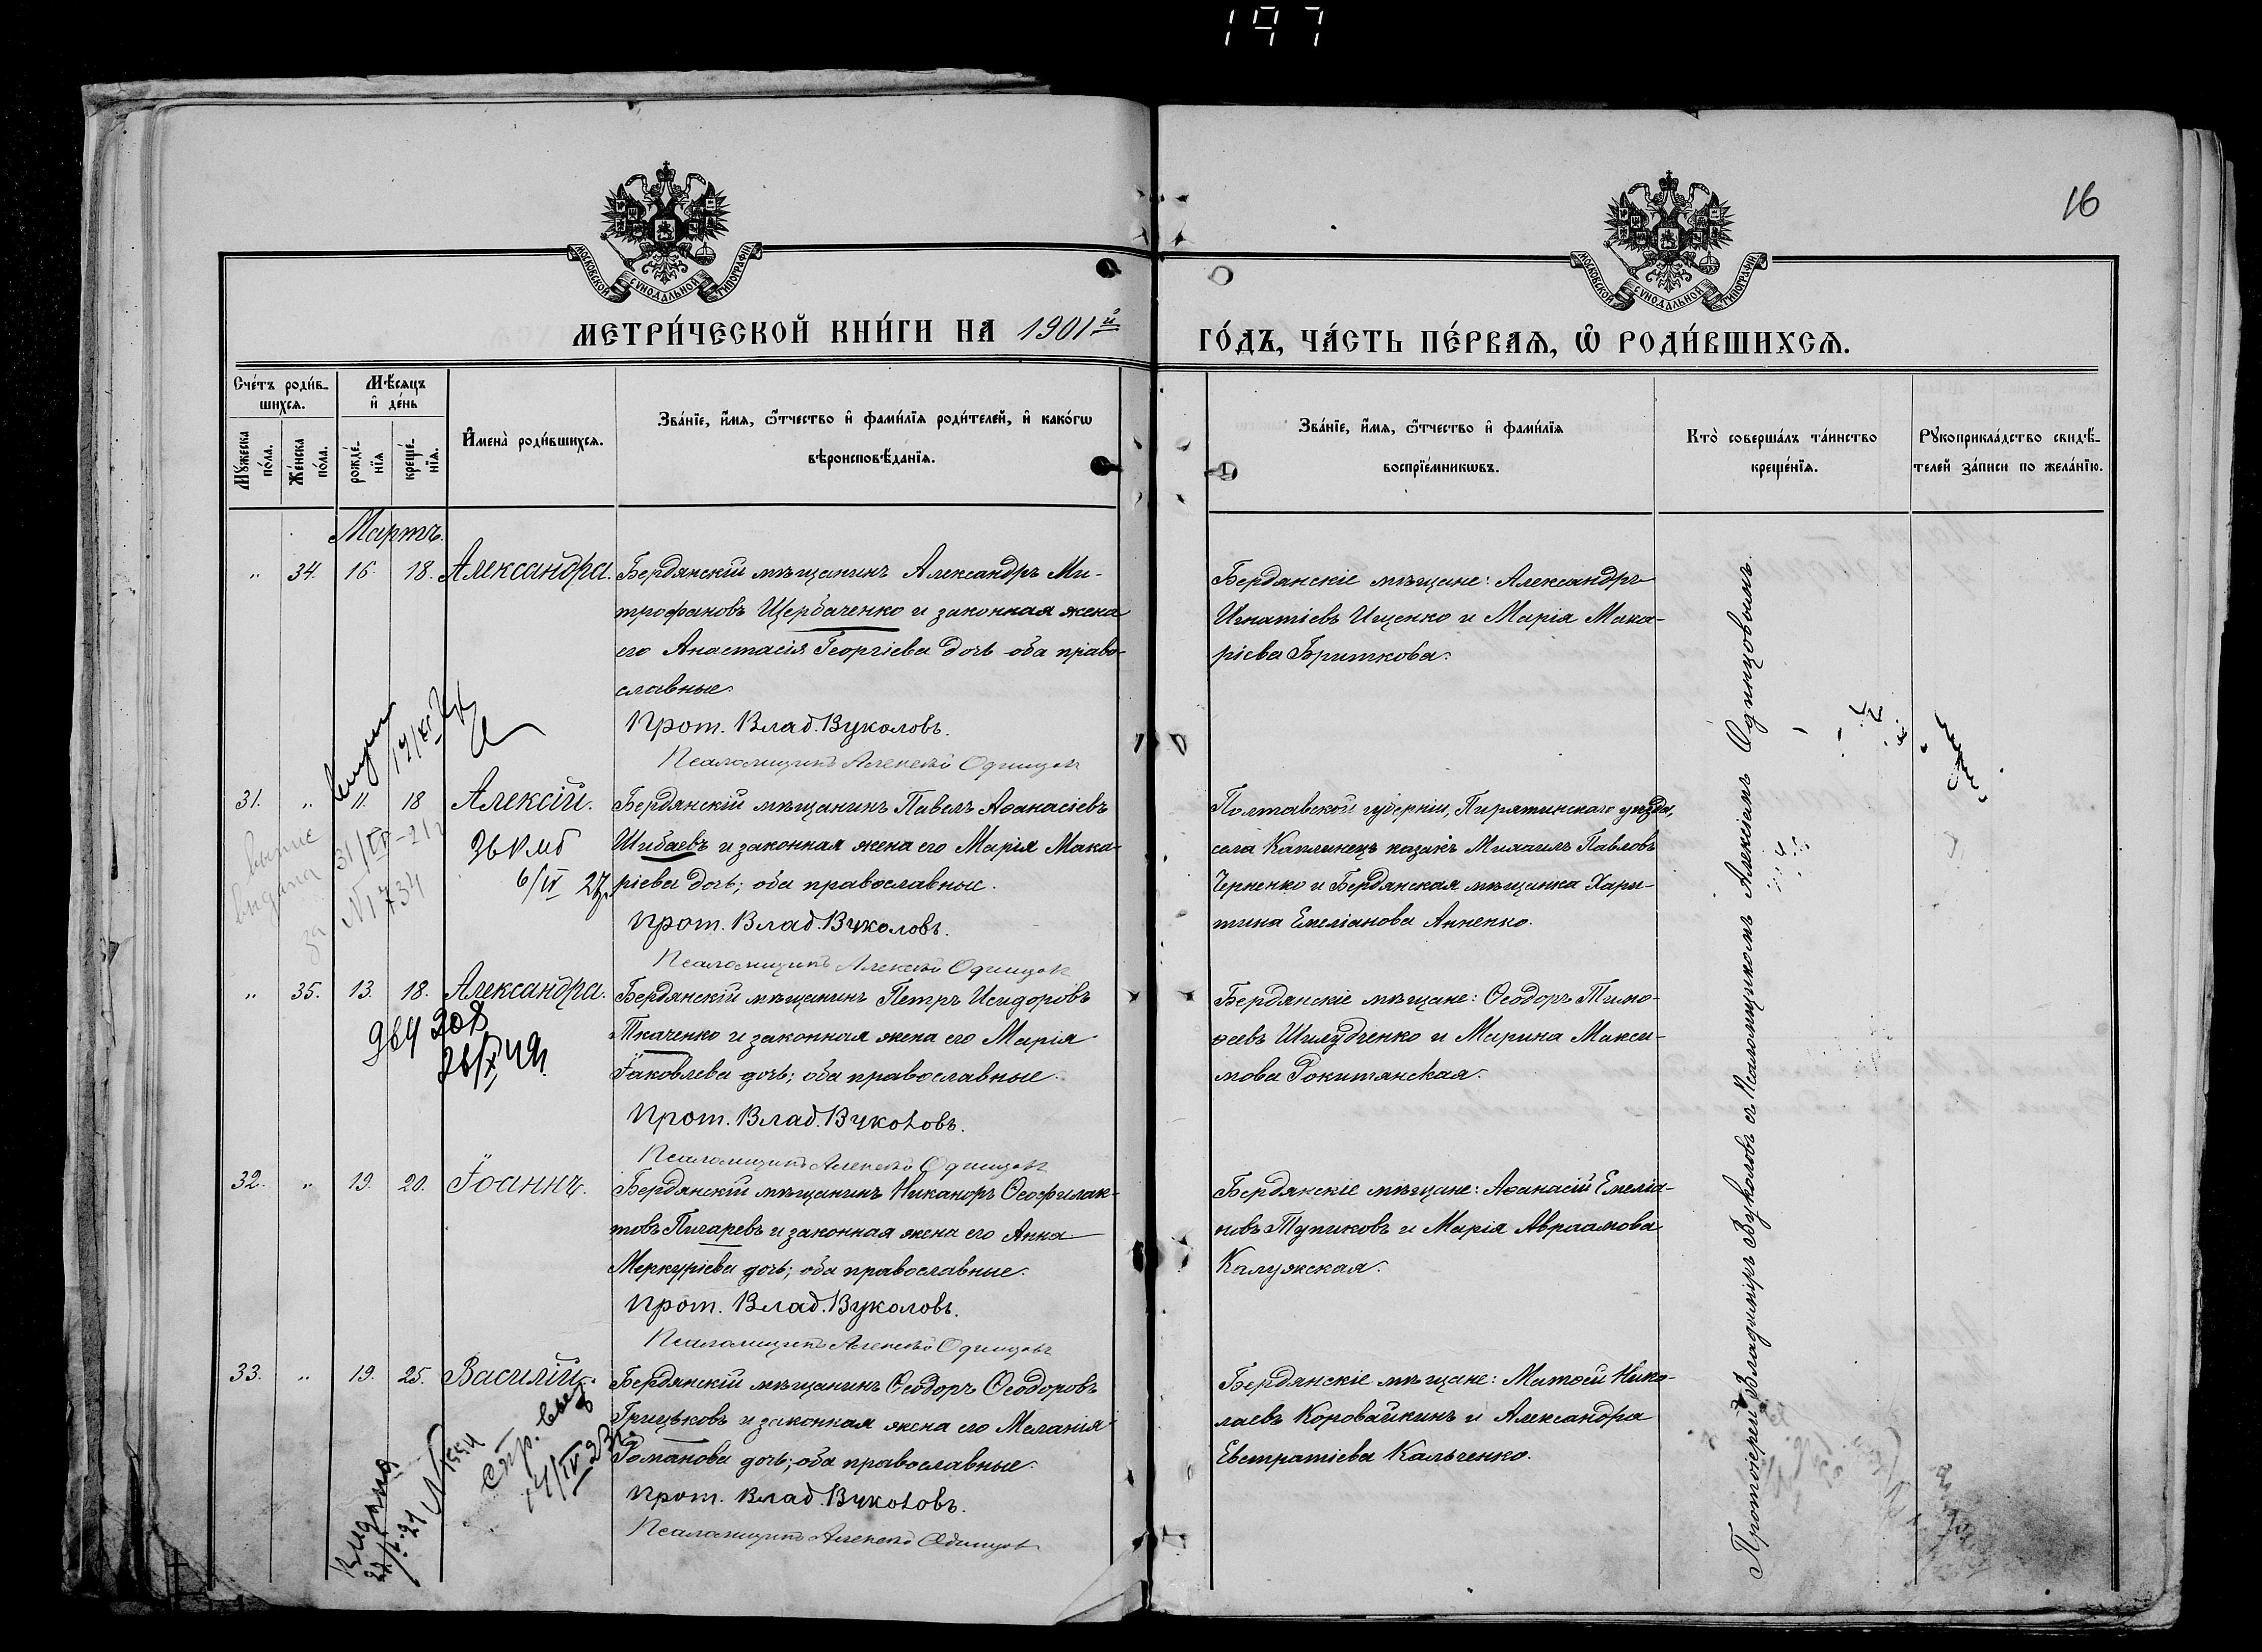 197
16
МОСКОВСКОЙ СУНОДАЛЬНОЙ ТИПОГРАФІИ
МОСКОВСКОЙ СУНОДАЛЬНОЙ ТИПОГРАФІИ
МЕТРИ́ЧЕСКОЙ КНИ́ГИ НА 1901й
ГО́ДЪ, ЧА́СТЬ ПЕ́РВАѦ, Ѡ҆ РОДИ́ВШИХСѦ.
Сче́тъ роди́в-
шихсѧ.
Мꙋ́жеска
по́ла.
Же́нска
по́ла.
Мѣ́сѧцъ
и҆ де́нь
рожде́-
нїѧ.
креще́-
нїѧ.
И҆мена̀ роди́вшихсѧ.
Зва́нїе, и҆́мѧ, ѻ҆́тчество и҆ фами́лїѧ роди́телей, и҆ како́гѡ
вѣроисповѣ́данїѧ.
Зва́нїе, и҆́мѧ, ѻ҆́тчество и҆ фами́лїѧ
воспрїе́мникѡвъ.
Кто̀ соверша́лъ та́инство
креще́нїѧ.
Рꙋкоприкла́дство свидѣ́-
телей за́писи по жела́нїю.
Мартъ.
„ 34. 16. 18. Александра.
Бердянскій мѣщанинъ Александръ Ми-
трофановъ Щербаченко и законная жена
его Анастасія Георгіева дочь оба право-
славные.
Прот. Влад. Вуколовъ.
Псаломщикъ Алексѣй Одинцовъ
Бердянскіе мѣщане: Александръ
Игнатіевъ Ищенко и Марія Мака-
ріева Бриткова.
31. „ 11. 18 Алексій.
Бердянскій мѣщанинъ Павелъ Аѳанасіевъ
Шибаевъ и законная жена его Марія Мака-
ріева дочь; оба православные.
Прот. Влад. Вуколовъ.
Псаломщикъ Алексѣй Одинцовъ
выдана
за N1734
6/IV 27г.
Полтавской губерніи, Пирятинскаго уѣзда,
села Каплинецъ казакъ Михаилъ Павловъ
Черненко и Бердянская мѣщанка Хари-
тина Емеліанова Анненко.
„ 35. 13. 18. Александра.
Бердянскій мѣщанинъ Петръ Исидоровъ
Ткаченко и законная жена его Марія
Іаковлева дочь; оба православные.
Прот. Влад. Вуколовъ.
Псаломщикъ Алексѣй Одинцовъ
Бердянскіе мѣщане: Ѳеодоръ Тимо-
ѳеевъ Шилудченко и Марина Макси-
мова Рокитянская.
32. „ 19. 20. Іоаннъ.
Бердянскій мѣщанинъ Никаноръ Ѳеофилак-
товъ Пичаревъ и законная жена его Анна
Меркуріева дочь; оба православные.
Прот. Влад. Вуколовъ.
Псаломщикъ Алексѣй Одинцовъ
Бердянскіе мѣщане: Аѳанасій Емелiа-
новъ Тупиковъ и Марія Авраамова
Калужская.
33. „ 19. 25. Василій.
Бердянскій мѣщанинъ Ѳеодоръ Ѳеодоровъ
Грицьковъ и законная жена его Меланія
Романова дочь; оба православные.
Прот. Влад. Вуколовъ.
Псаломщикъ Алексѣй Одинцовъ
Выдана
14/IV 23г.
Бердянскіе мѣщане: Матѳей Нико-
лаевъ Коровайкинъ и Александра
Евстратіева Кальченко.
Протоіерей Владиміръ Вуколовъ съ Псаломщикомъ Алексіемъ Одинцовымъ.